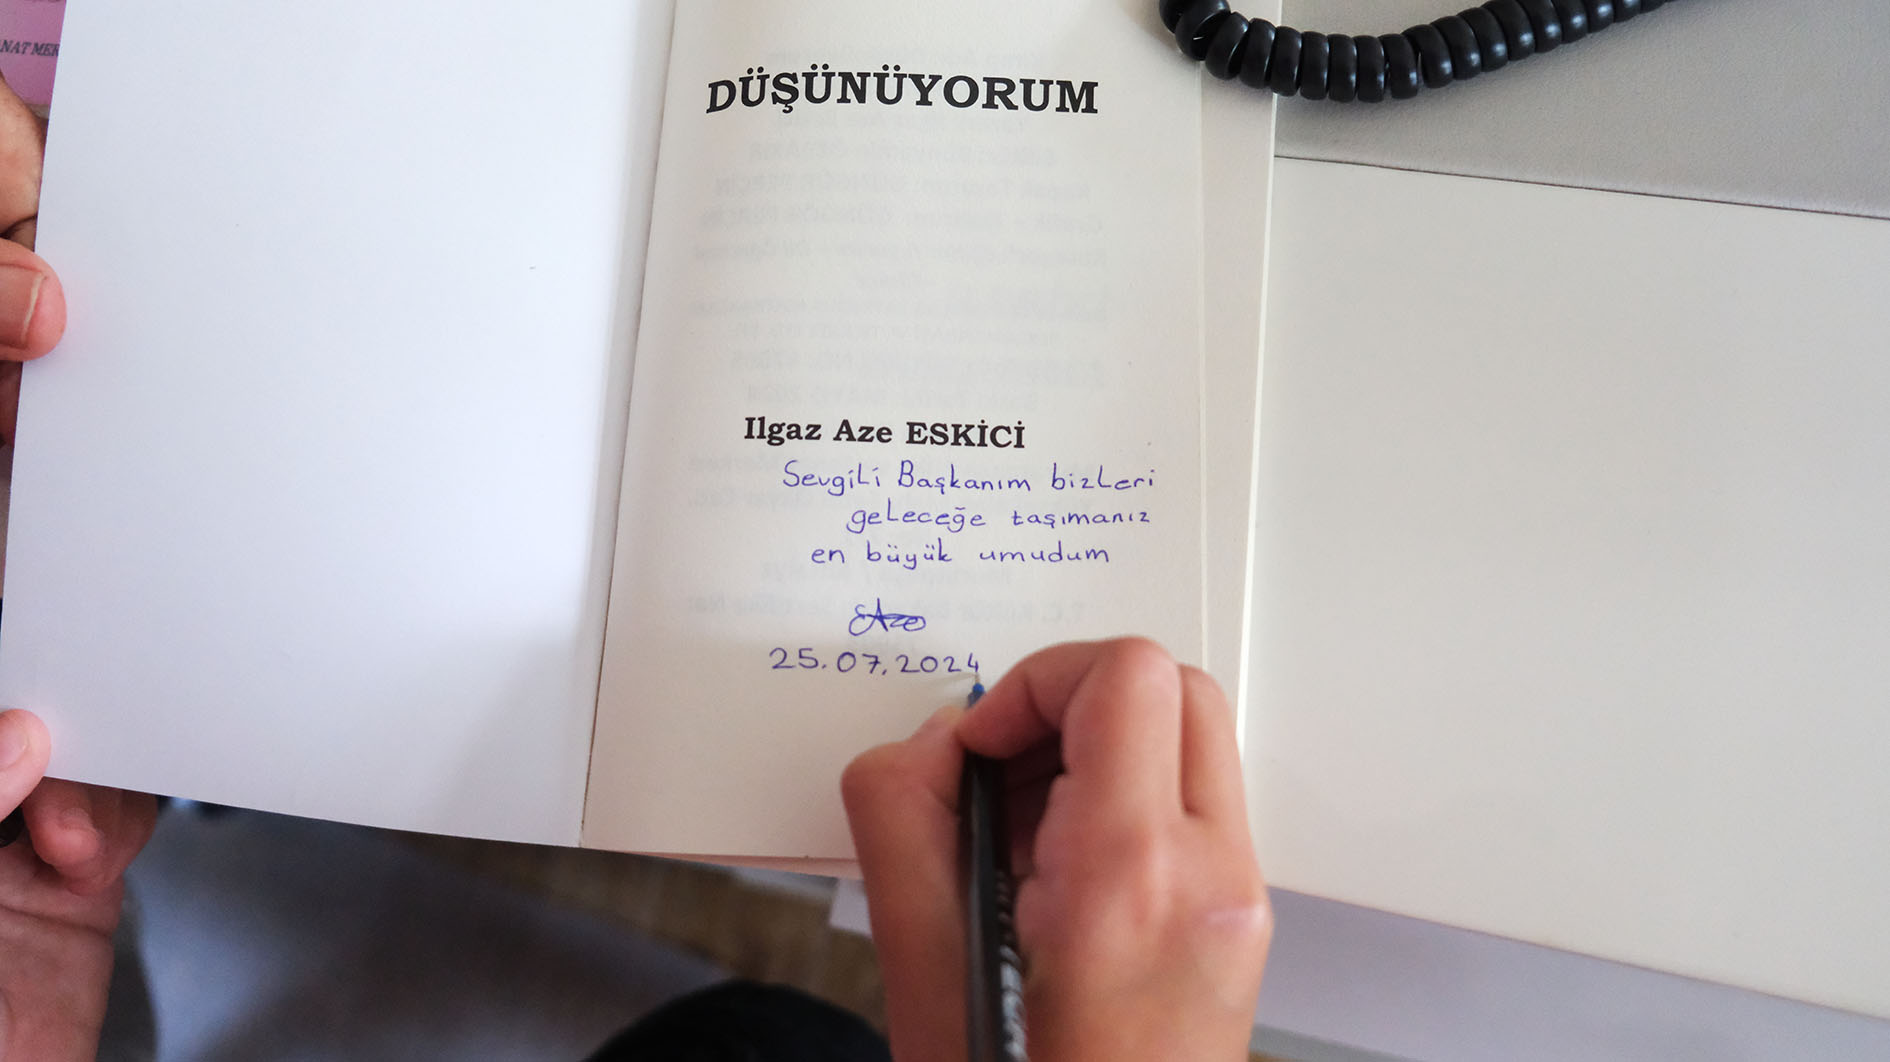 DÜŞÜNÜYORUM
Ilgaz Aze ESKİCİ
Sevgili Başkanım bizleri
geleceğe taşımanız
en büyük umudum
Aze
25.07.2024